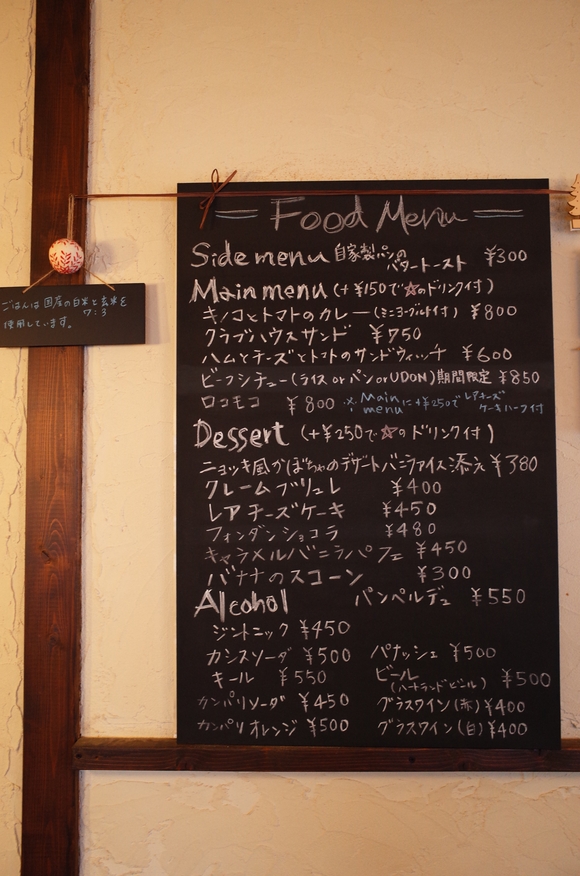 ごはんは国産の白米と玄米を
7:3
使用しています。
Food Menu
Side menu 自家製パンの
バタートースト ¥300
Main menu (+¥150で☆のドリンク付)
キノコとトマトのカレー(ミニヨーグルト付) ¥800
クラブハウスサンド ¥750
ハムとチーズとトマトのサンドウィッチ ¥600
ビーフシチュー(ライス or パン or UDON)期間限定 ¥850
ロコモコ ¥800 ※Main menuに+¥250でレアチーズケーキハーフ付
Dessert (+¥250で☆のドリンク付)
ニョッキ風かぼちゃのデザートバニラアイス添え ¥380
クレームブリュレ ¥400
レアチーズケーキ ¥450
フォンダンショコラ ¥480
キャラメルバニラパフェ ¥450
バナナのスコーン ¥300
Alcohol パンペルデュ ¥550
ジントニック ¥450
カシスソーダ ¥500 パナッシェ ¥500
キール ¥550 ビール ¥500
(ハートランドビール)
カンパリソーダ ¥450 グラスワイン(赤) ¥400
カンパリオレンジ ¥500 グラスワイン(白) ¥400